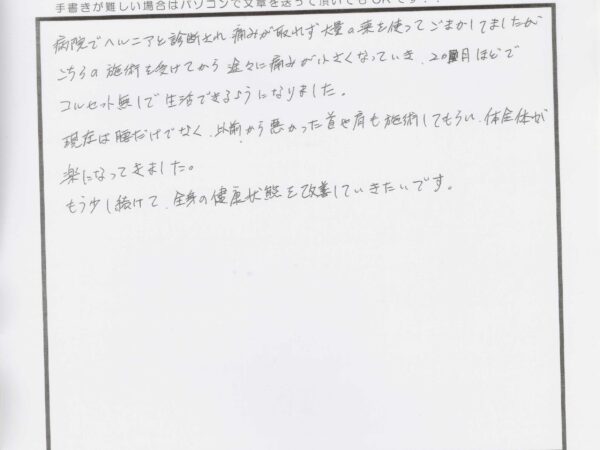 手書きが難しい場合はパソコンで文章を送って頂いても
病院でヘルニアと診断され 痛みが取れず大量の薬を使ってごまかしてましたが
こちらの施術を受けてから 途々に痛みが小さくなっていき、2ヶ月ほどで
コルセット無しで生活できるようになりました。
現在は腰だけでなく、以前から悪かった首や肩も施術してもらい、体全体が
楽になってきました。
もう少し続けて、全身の健康状態を改善していきたいです。